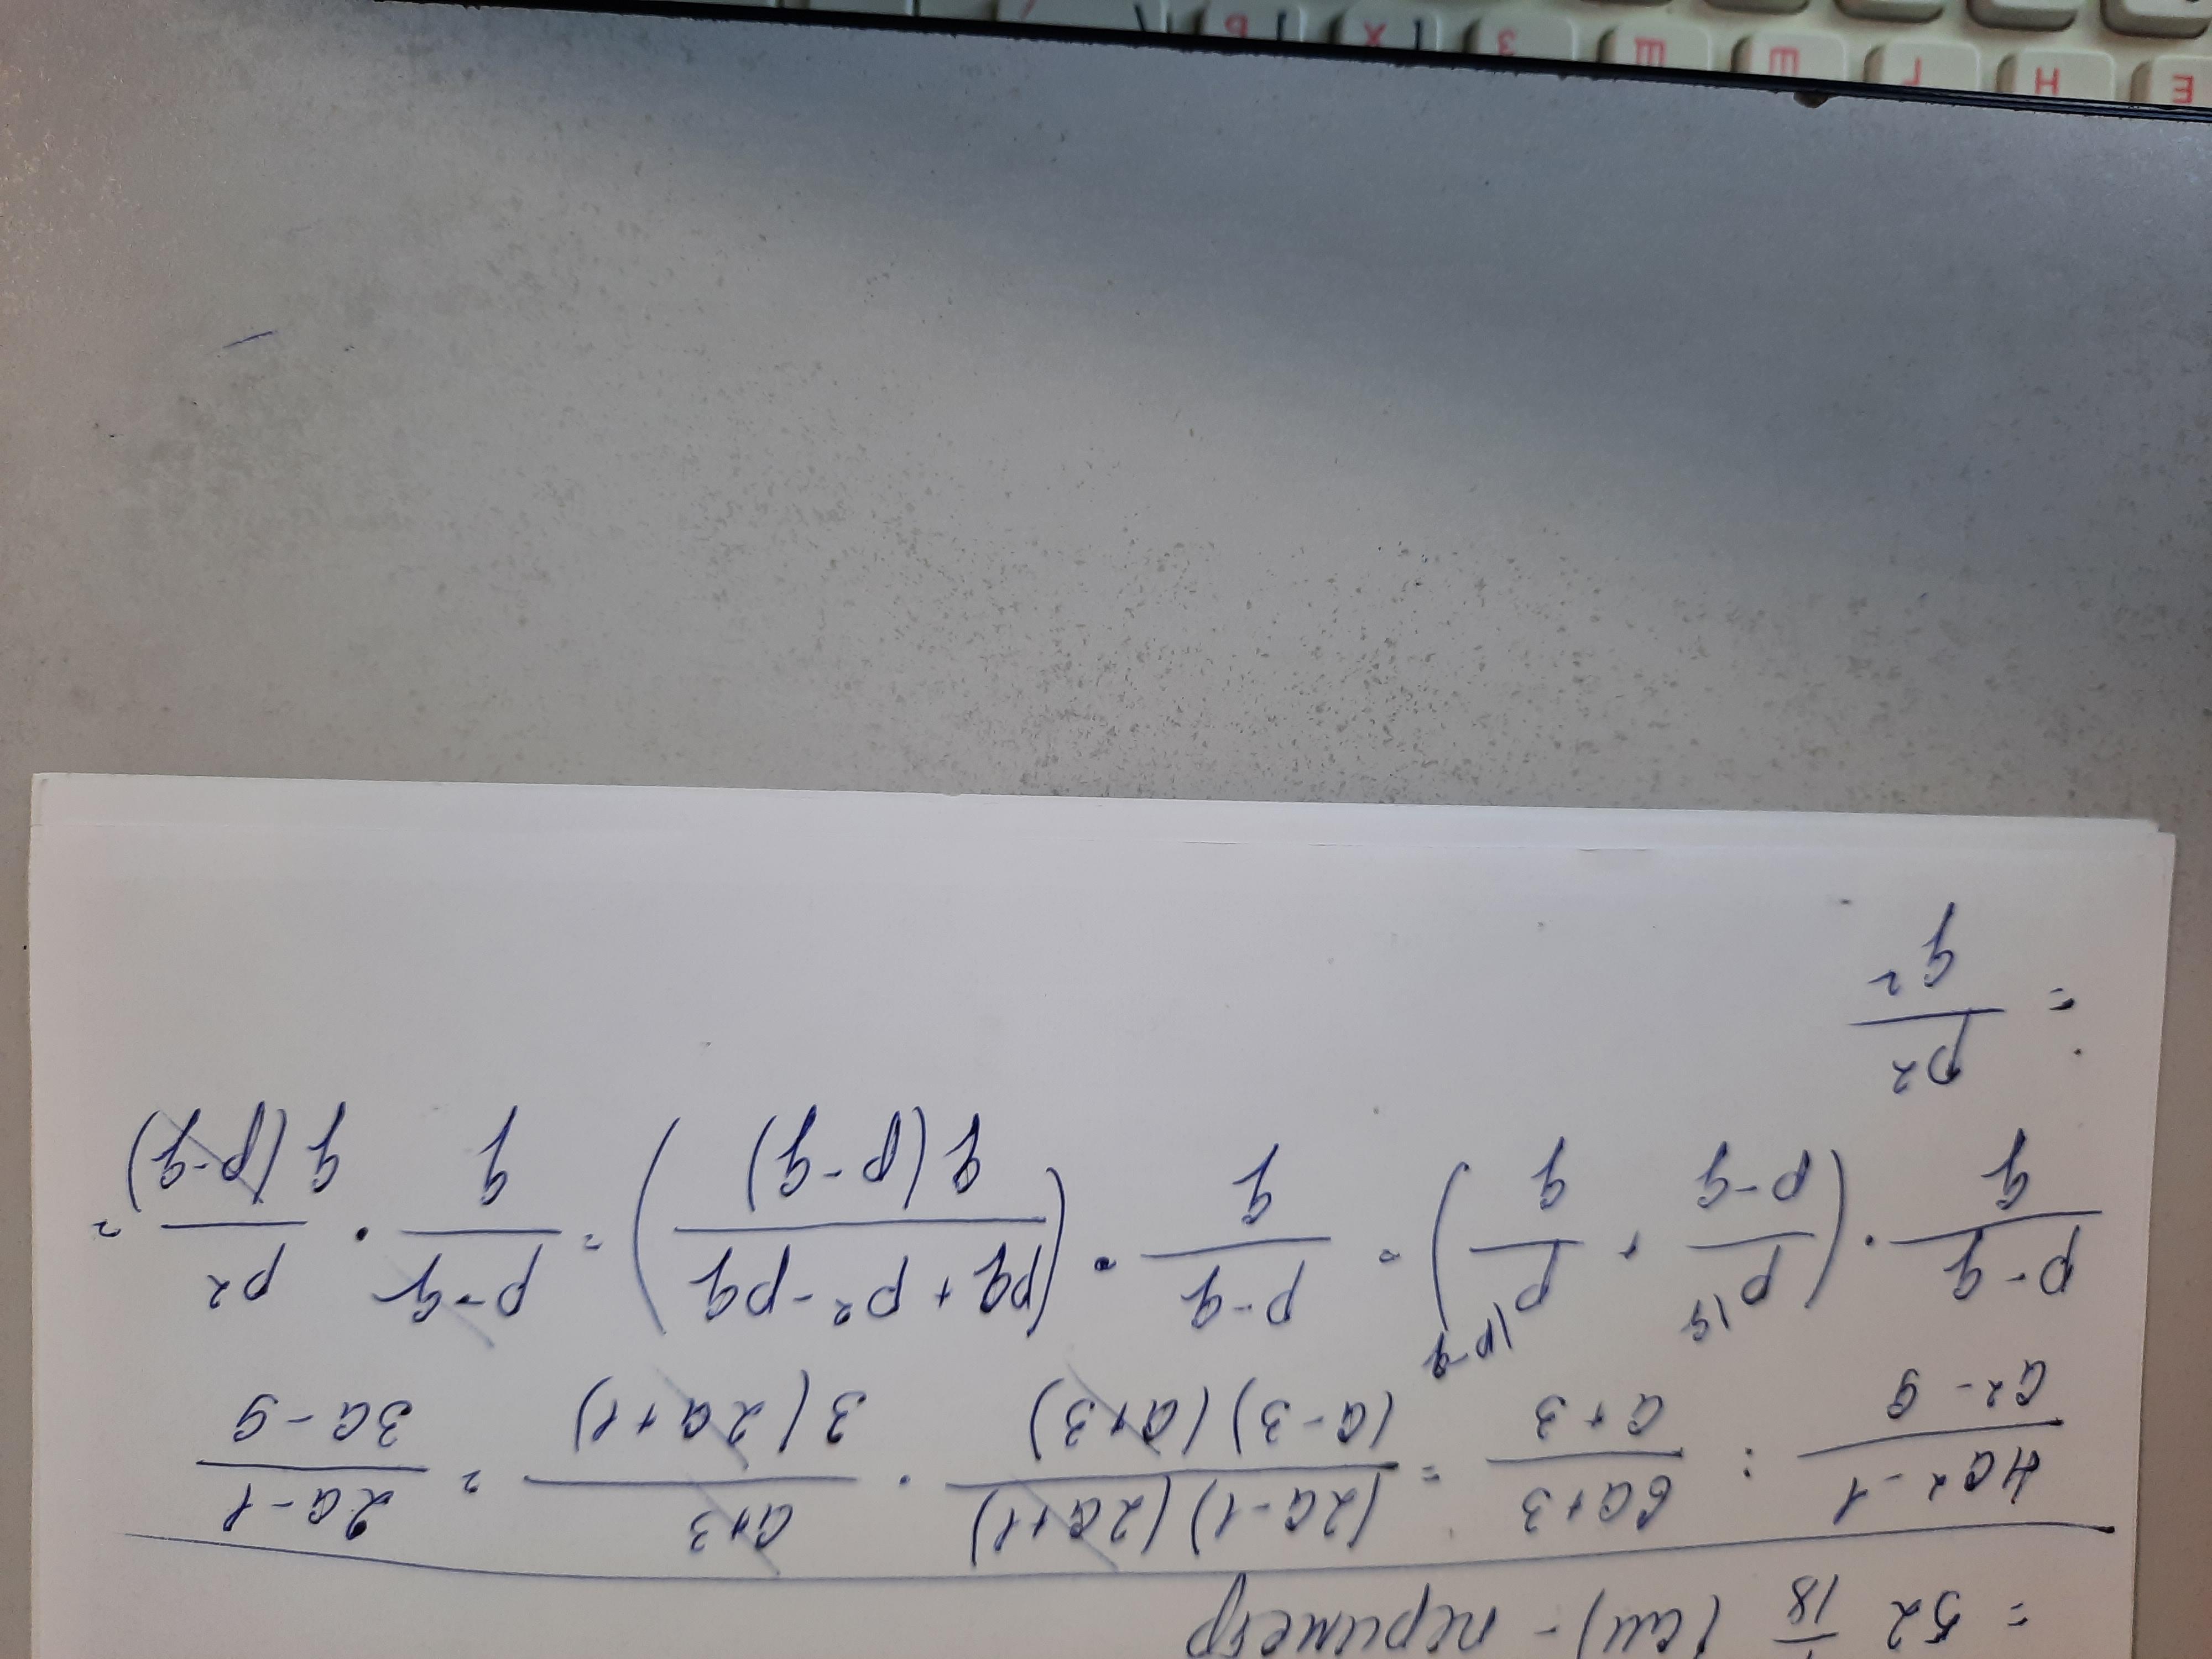 = 52 1/18 (см) - периметр
(4a² - 1)/(a² - 9) : (6a + 3)/(a + 3) = ((2a - 1)(2a + 1))/((a - 3)(a + 3)) · (a + 3)/(3(2a + 1)) = (2a - 1)/(3a - 9)
(p - q)/q · (p\q/(p - q) + p\p-q/q) = (p - q)/q · ((pq + p² - pq)/(q(p - q))) = (p - q)/q · p²/(q(p - q)) =
= p²/q²
Е Н Г Ш Щ З Х Ъ